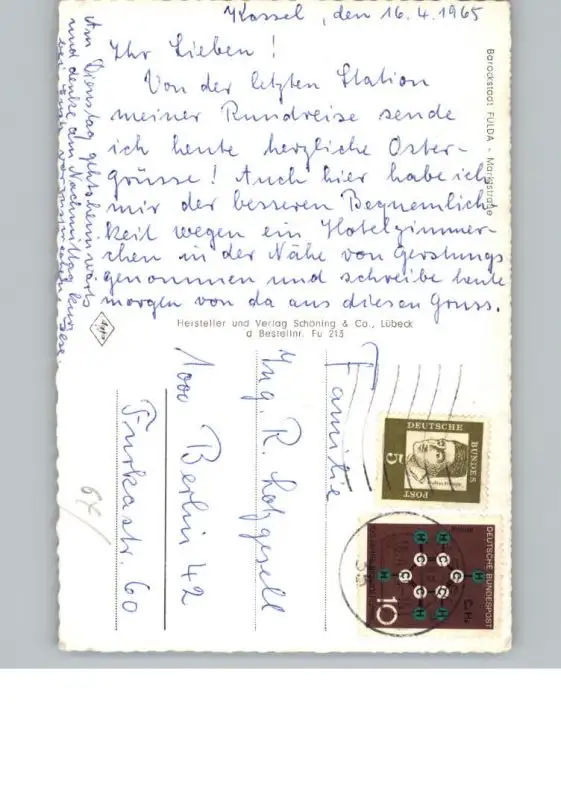 Kassel, den 16.4.1965
Ihr Lieben!
Von der letzten Station
meiner Rundreise sende
ich heute herzliche Oster-
grüsse! Auch hier habe ich
mir der besseren Bequemlich-
keit wegen ein Hotelzimmer-
chen in der Nähe von Gerstungs
genommen und schreibe heute
morgen von da aus diesen Gruss.
Am Dienstag gehts heimwärts
und denke am Nachmittag kurz
bei Euch vorzusprechen.
Barockstadt FULDA - Marktstraße
Hersteller und Verlag Schöning & Co., Lübeck
Bestellnr. Fu 213
Familie
Ing. R. Lotzgesell
1000 Berlin 42
Furkastr. 60
DEUTSCHE BUNDESPOST
5
DEUTSCHE BUNDESPOST
10
C6H6
H H H H H H
C C C C C C
35